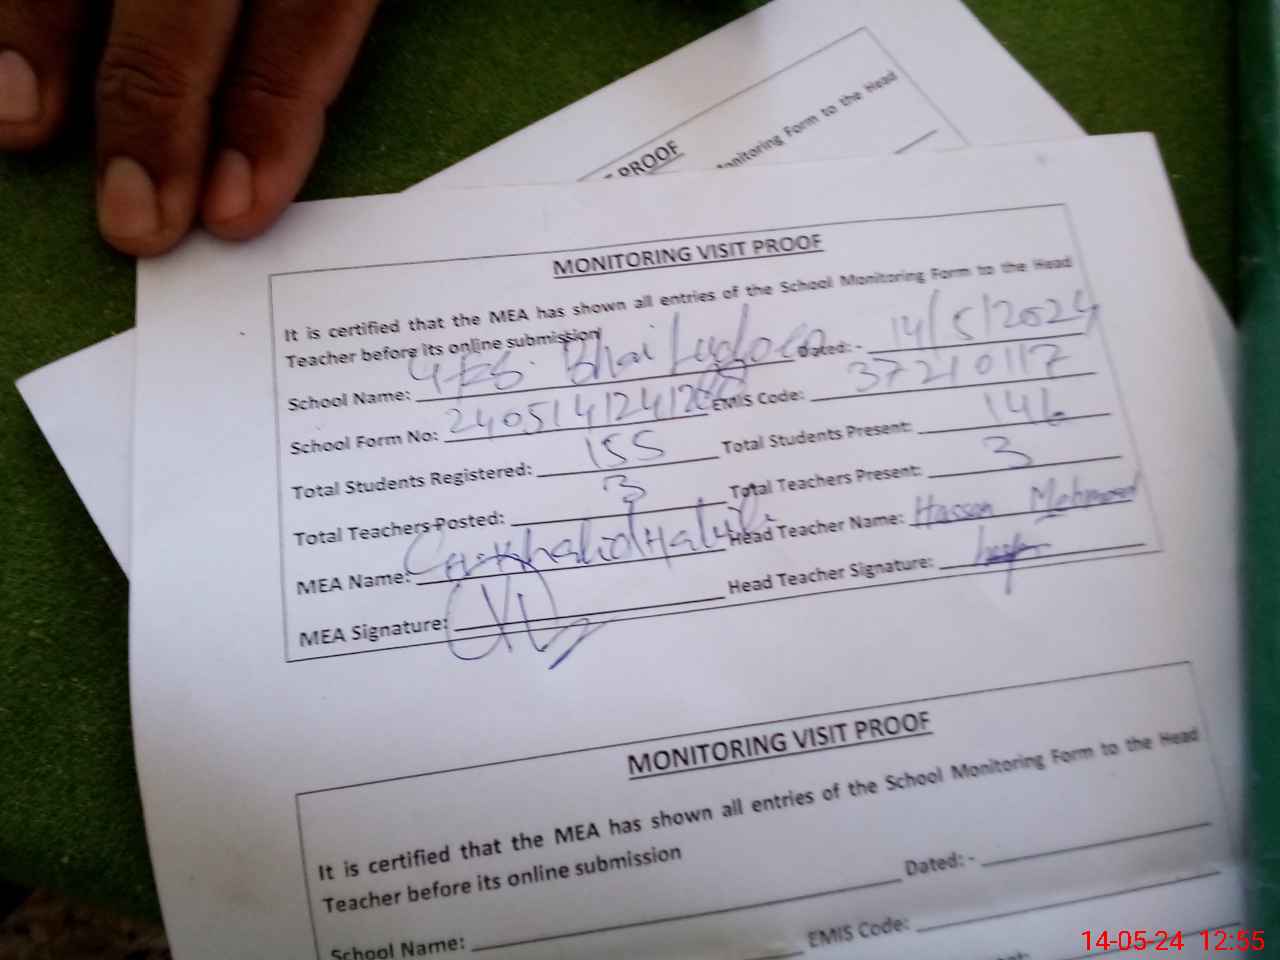 PROOF
onitoring Form to the Head
MONITORING VISIT PROOF
It is certified that the MEA has shown all entries of the School Monitoring Form to the Head
Teacher before its online submission
School Name: Bhai Dated: - 14/5/2024
School Form No: EMIS Code: 37210117
Total Students Registered: 155 Total Students Present:
Total Teachers Posted: 3 Total Teachers Present: 3
MEA Name: Khalid Head Teacher Name: Hassan Mehmood
MEA Signature: Head Teacher Signature:
MONITORING VISIT PROOF
It is certified that the MEA has shown all entries of the School Monitoring Form to the Head
Teacher before its online submission
Dated: -
School Name: EMIS Code:
14-05-24 12:55